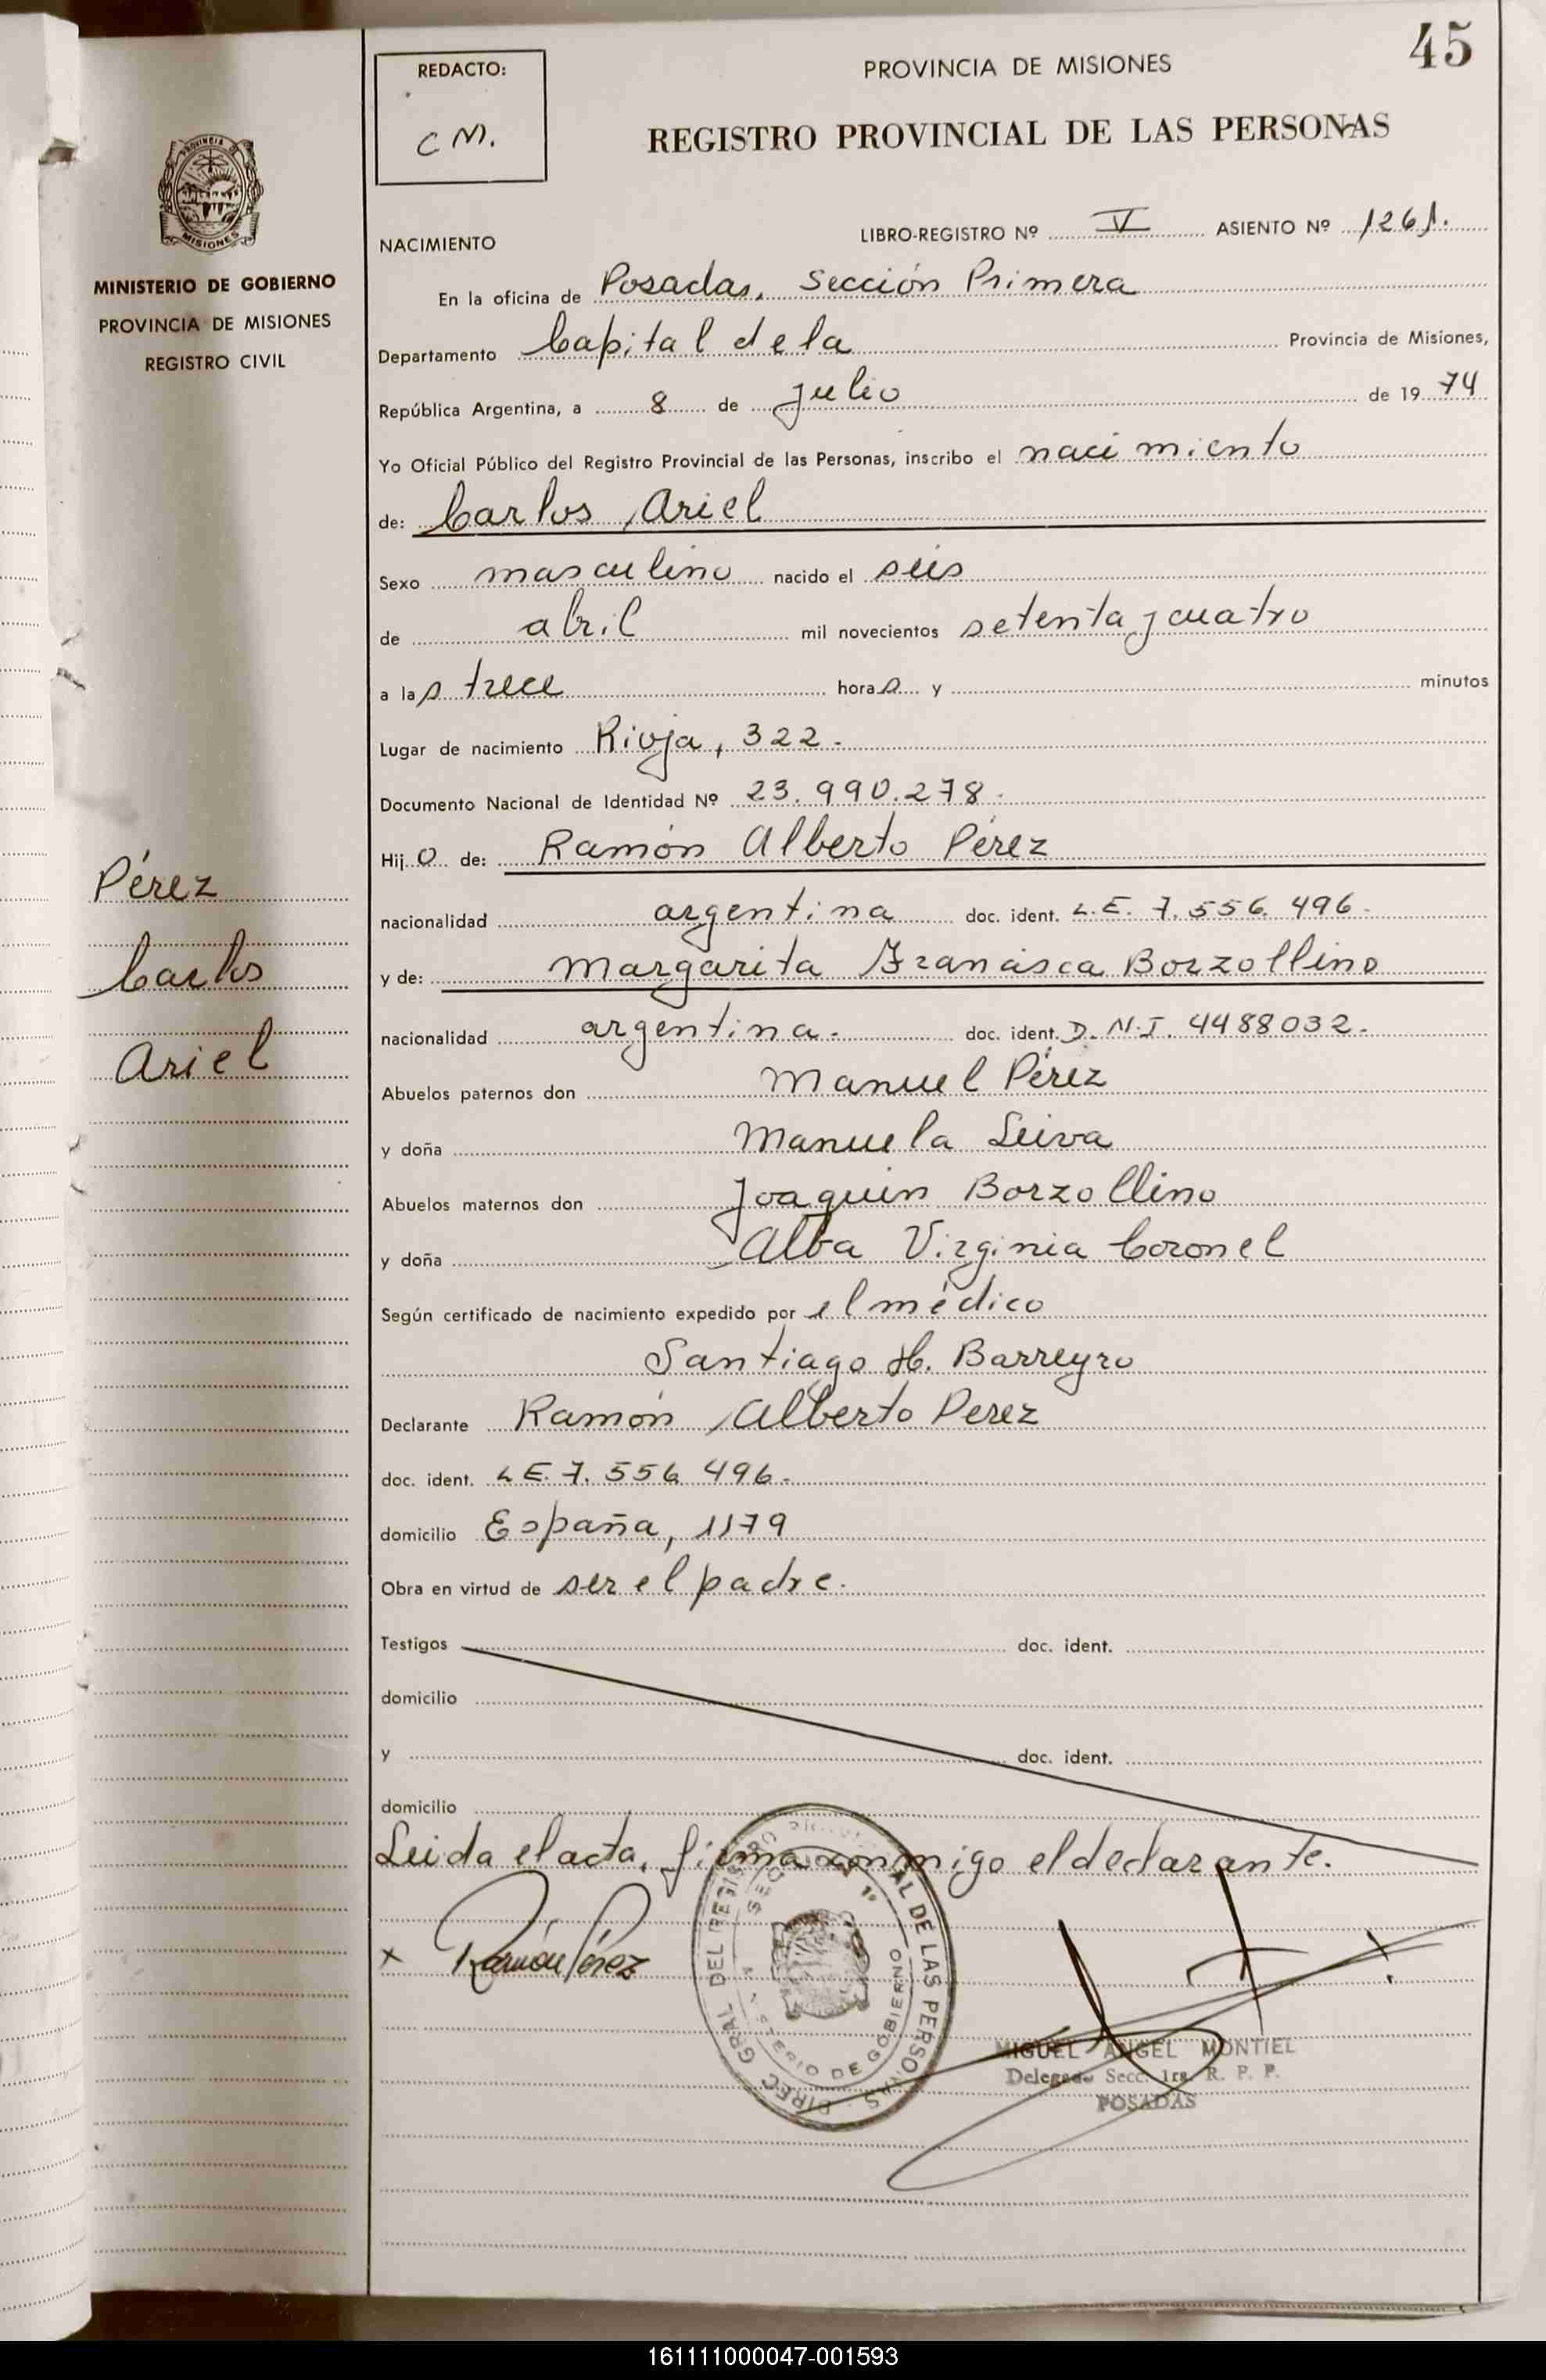 45
REDACTO:
C M.
PROVINCIA DE MISIONES
REGISTRO PROVINCIAL DE LAS PERSONAS
PROVINCIA D
MISIONES
MINISTERIO DE GOBIERNO
PROVINCIA DE MISIONES
REGISTRO CIVIL
NACIMIENTO
LIBRO-REGISTRO Nº V ASIENTO Nº 1261.
En la oficina de Posadas, Sección Primera
Departamento Capital de la Provincia de Misiones,
República Argentina, a 8 de julio de 1974
Yo Oficial Público del Registro Provincial de las Personas, inscribo el nacimiento
de: Carlos Ariel
Sexo masculino nacido el seis
de abril mil novecientos setenta y cuatro
a las trece horas y minutos
Lugar de nacimiento Rioja, 322.
Documento Nacional de Identidad Nº 23.990.278.
Hijo de: Ramón Alberto Pérez
nacionalidad argentina doc. ident. L.E. 7.556.496.
y de: Margarita Francisca Borzollino
nacionalidad argentina. doc. ident. D.N.I. 4488032.
Abuelos paternos don Manuel Pérez
y doña Manuela Leiva
Abuelos maternos don Joaquín Borzollino
y doña Alba Virginia Coronel
Según certificado de nacimiento expedido por el médico
Santiago H. Barreyro
Declarante Ramón Alberto Perez
doc. ident. L.E. 7.556.496.
domicilio España, 1179
Obra en virtud de ser el padre.
Testigos doc. ident.
domicilio
y doc. ident.
domicilio
Leida el acta, firma conmigo el declarante.
x Ramón Pérez
DIREC. GRAL DEL REGISTRO PROVINCIAL DE LAS PERSONAS
MINISTERIO DE GOBIERNO
MIGUEL ANGEL MONTIEL
Delegado Secc. 1ra. R. P. P.
POSADAS
Pérez
Carlos
Ariel
161111000047-001593